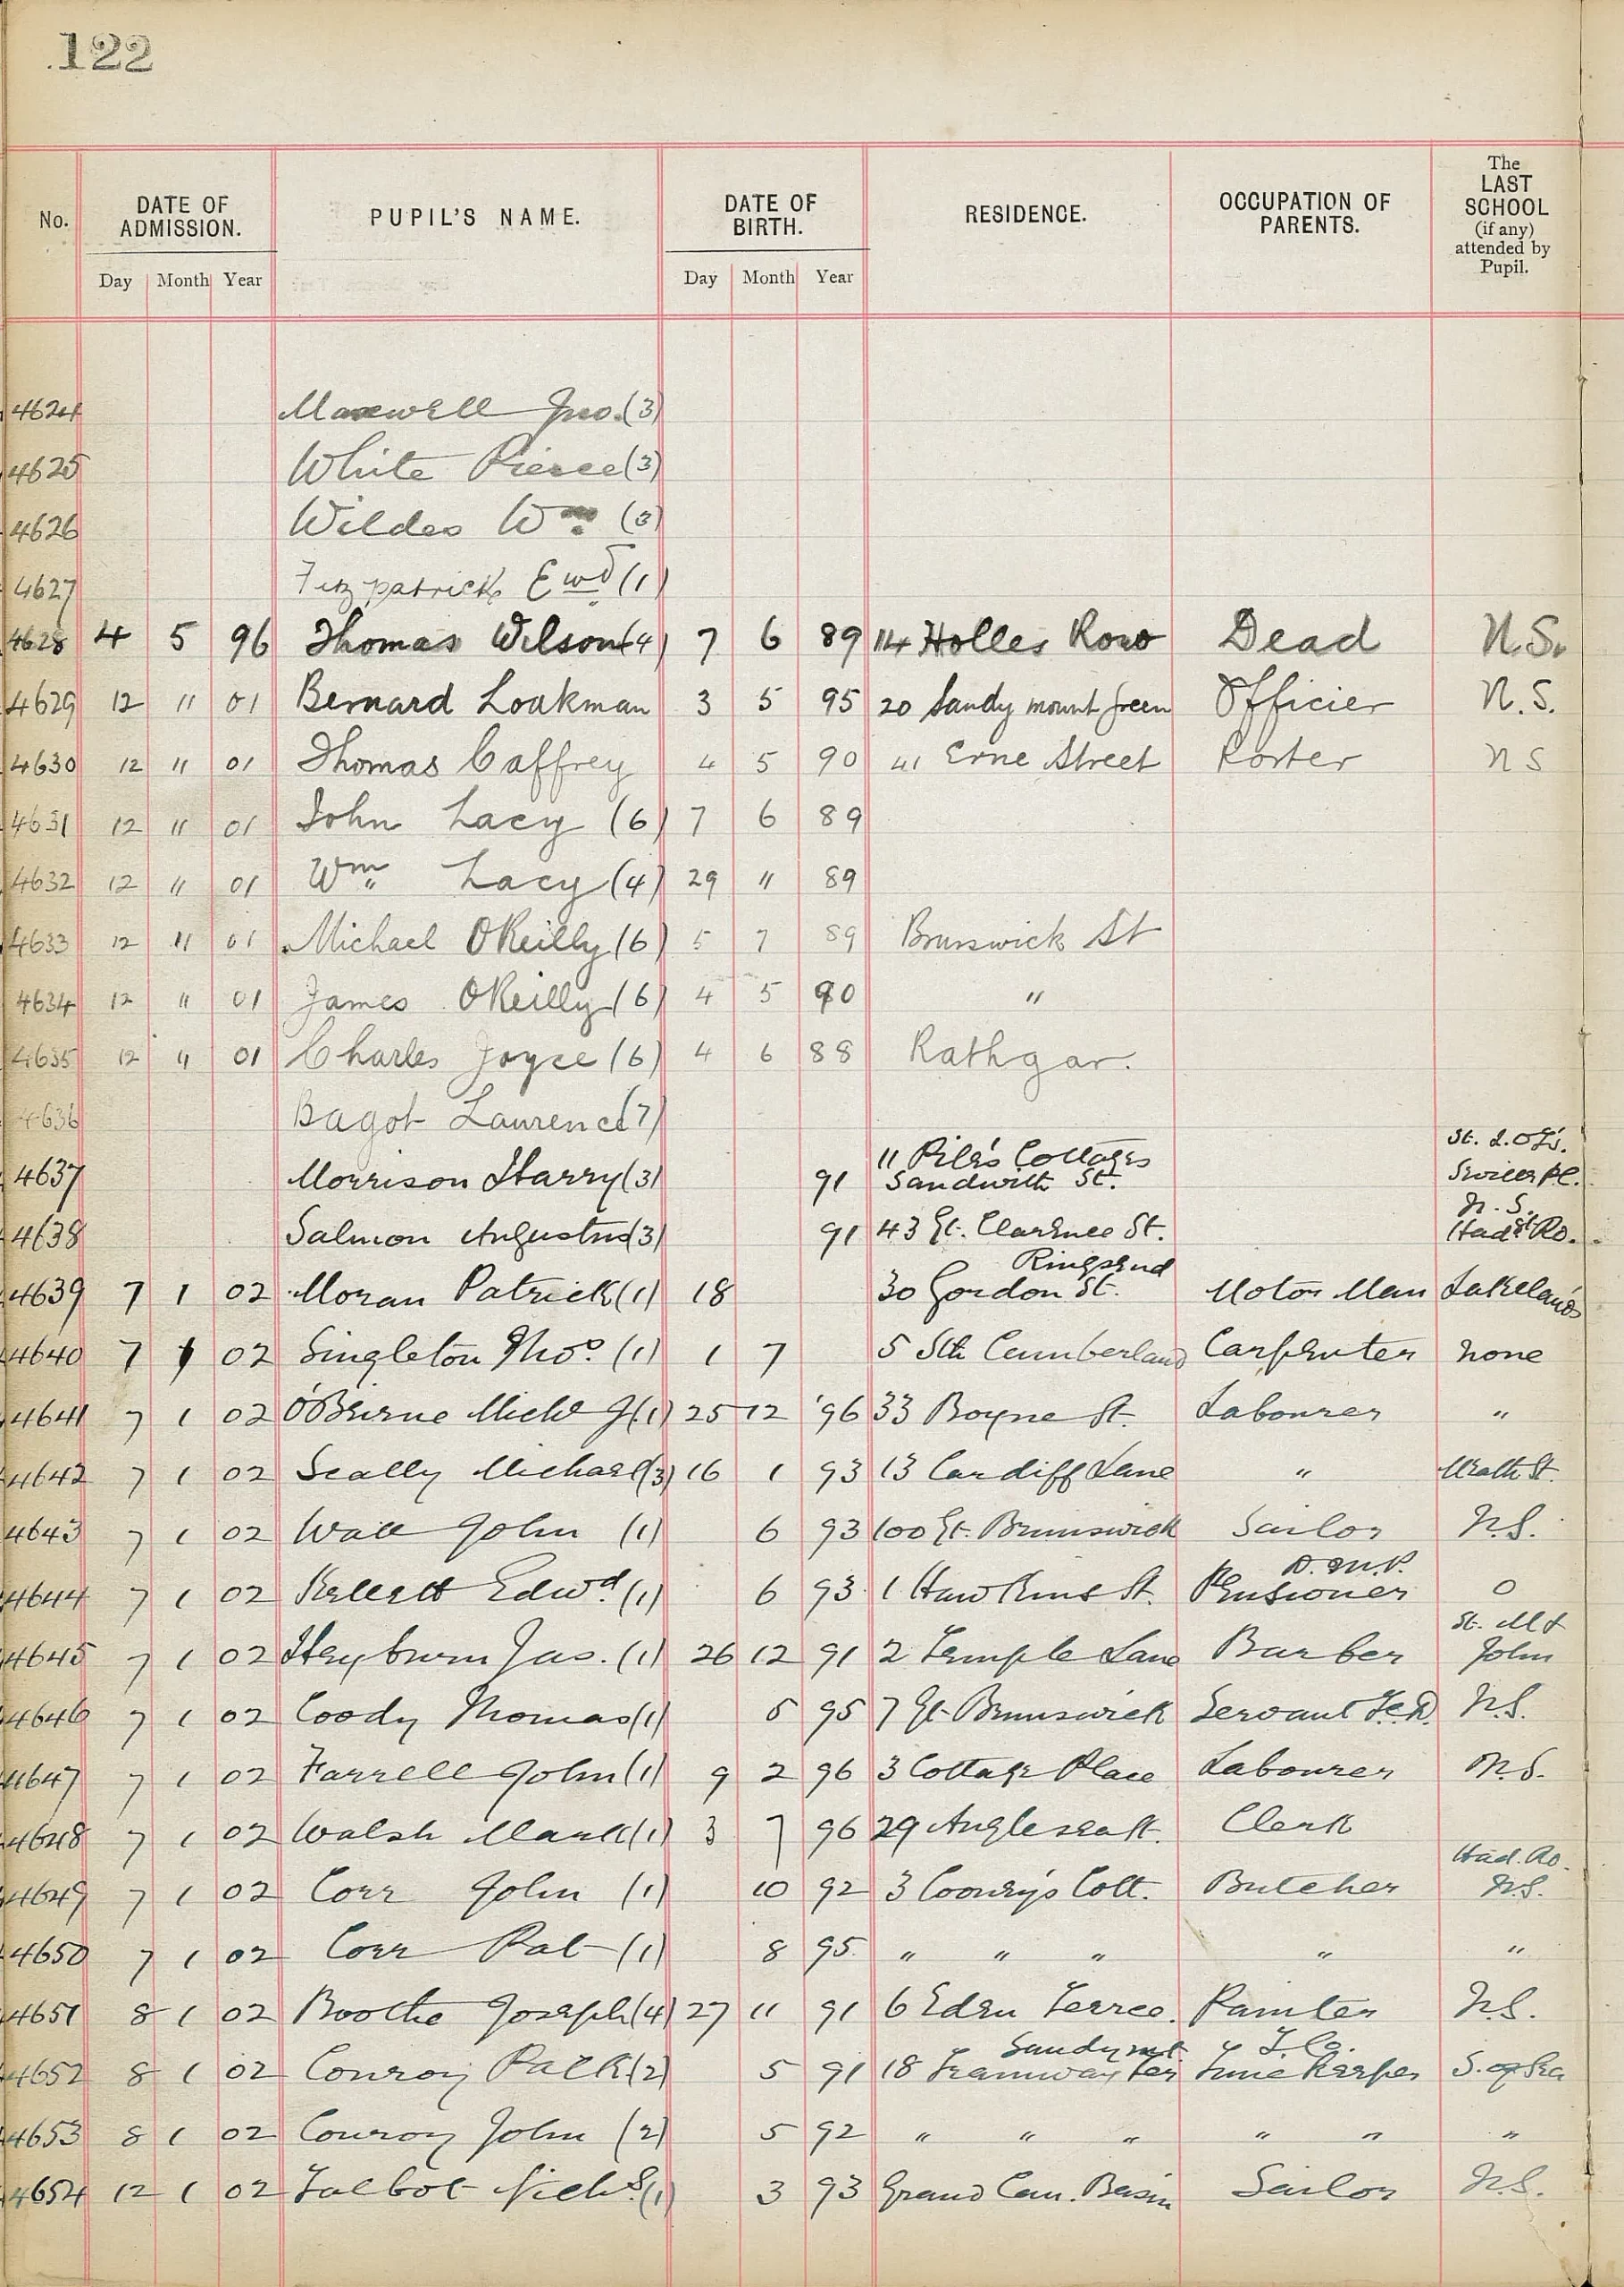 122
No. DATE OF ADMISSION. PUPIL'S NAME. DATE OF BIRTH. RESIDENCE. OCCUPATION OF PARENTS. The LAST SCHOOL (if any) attended by Pupil.
Day Month Year Day Month Year
4624 Maxwell Jno. (3)
4625 White Pierce (3)
4626 Wildes Wm (3)
4627 Fitzpatrick Ewd (1)
4628 4 5 96 Thomas Wilson (4) 7 6 89 114 Holles Row Dead N.S.
4629 12 11 01 Bernard Loakman 3 5 95 20 Sandy mount green Officier N.S.
4630 12 11 01 Thomas Caffrey 4 5 90 41 Erne Street Porter N S
4631 12 11 01 John Lacy (6) 7 6 89
4632 12 11 01 Wm Lacy (4) 29 11 89
4633 12 11 01 Michael OReilly (6) 5 7 89 Brunswick St
4634 12 11 01 James OReilly (6) 4 5 90 "
4635 12 11 01 Charles Joyce (6) 4 6 88 Rathgar.
4636 Bagot Laurence (7)
11 Pile's Cottages St.
4637 Morrison Harry (3) 91 Sandwith St. Pl.
N.S.
4638 Salmon Augustus (3) 91 43 Gt. Clarence St. Had Ro.
Ringsend
4639 7 1 02 Moran Patrick (1) 18 30 Gordon St. Motor Man Lakelands
4640 7 1 02 Singleton Thos. (1) 1 7 5 Sth Cumberland Carpenter none
4641 7 1 02 O'Beirne Michl J (1) 25 12 '96 33 Boyne St. Labourer "
4642 7 1 02 Scally Michael (3) 16 1 93 13 Cardiff Lane " St.
4643 7 1 02 Wall John (1) 6 93 100 Gt. Brunswick Sailor N.S.
D.M.P.
4644 7 1 02 Kellett Edwd. (1) 6 93 1 Hawkins St. Pensioner 0
St. M &
4645 7 1 02 Heyburn Jas. (1) 26 12 91 2 Temple Lane Barber John
4646 7 1 02 Coody Thomas (1) 5 95 7 Gt. Brunswick Servant T.C.D. N.S.
4647 7 1 02 Farrell John (1) 9 2 96 3 Cottage Place Labourer N.S.
4648 7 1 02 Walsh Mark (1) 3 7 96 29 Anglesea St. Clerk
Had. Ro.
4649 7 1 02 Corr John (1) 10 92 3 Coonry's Cott. Butcher N.S.
4650 7 1 02 Corr Pat (1) 8 95 " " " " "
4651 8 1 02 Boothe Joseph (4) 27 11 91 6 Eden Terrce. Painter N.S.
Sandymt T. Co.
4652 8 1 02 Conroy Patk. (2) 5 91 18 Tramway Ter Time Keeper S. of Sea
4653 8 1 02 Conroy John (2) 5 92 " " " " " "
4654 12 1 02 Talbot Nichs. (1) 3 93 Grand Can. Basin Sailor N.S.